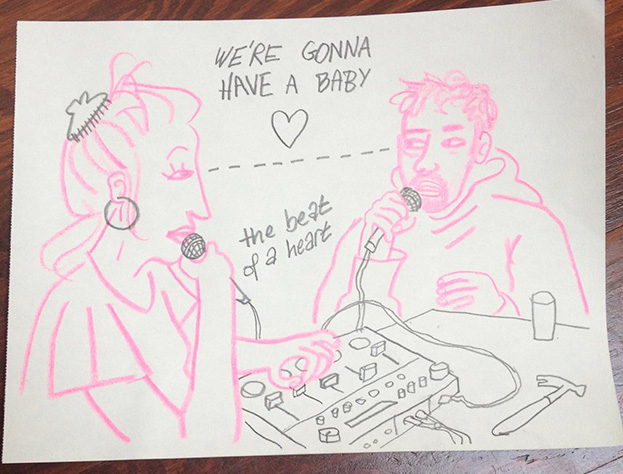 WE'RE GONNA
HAVE A BABY
the beat
of a heart